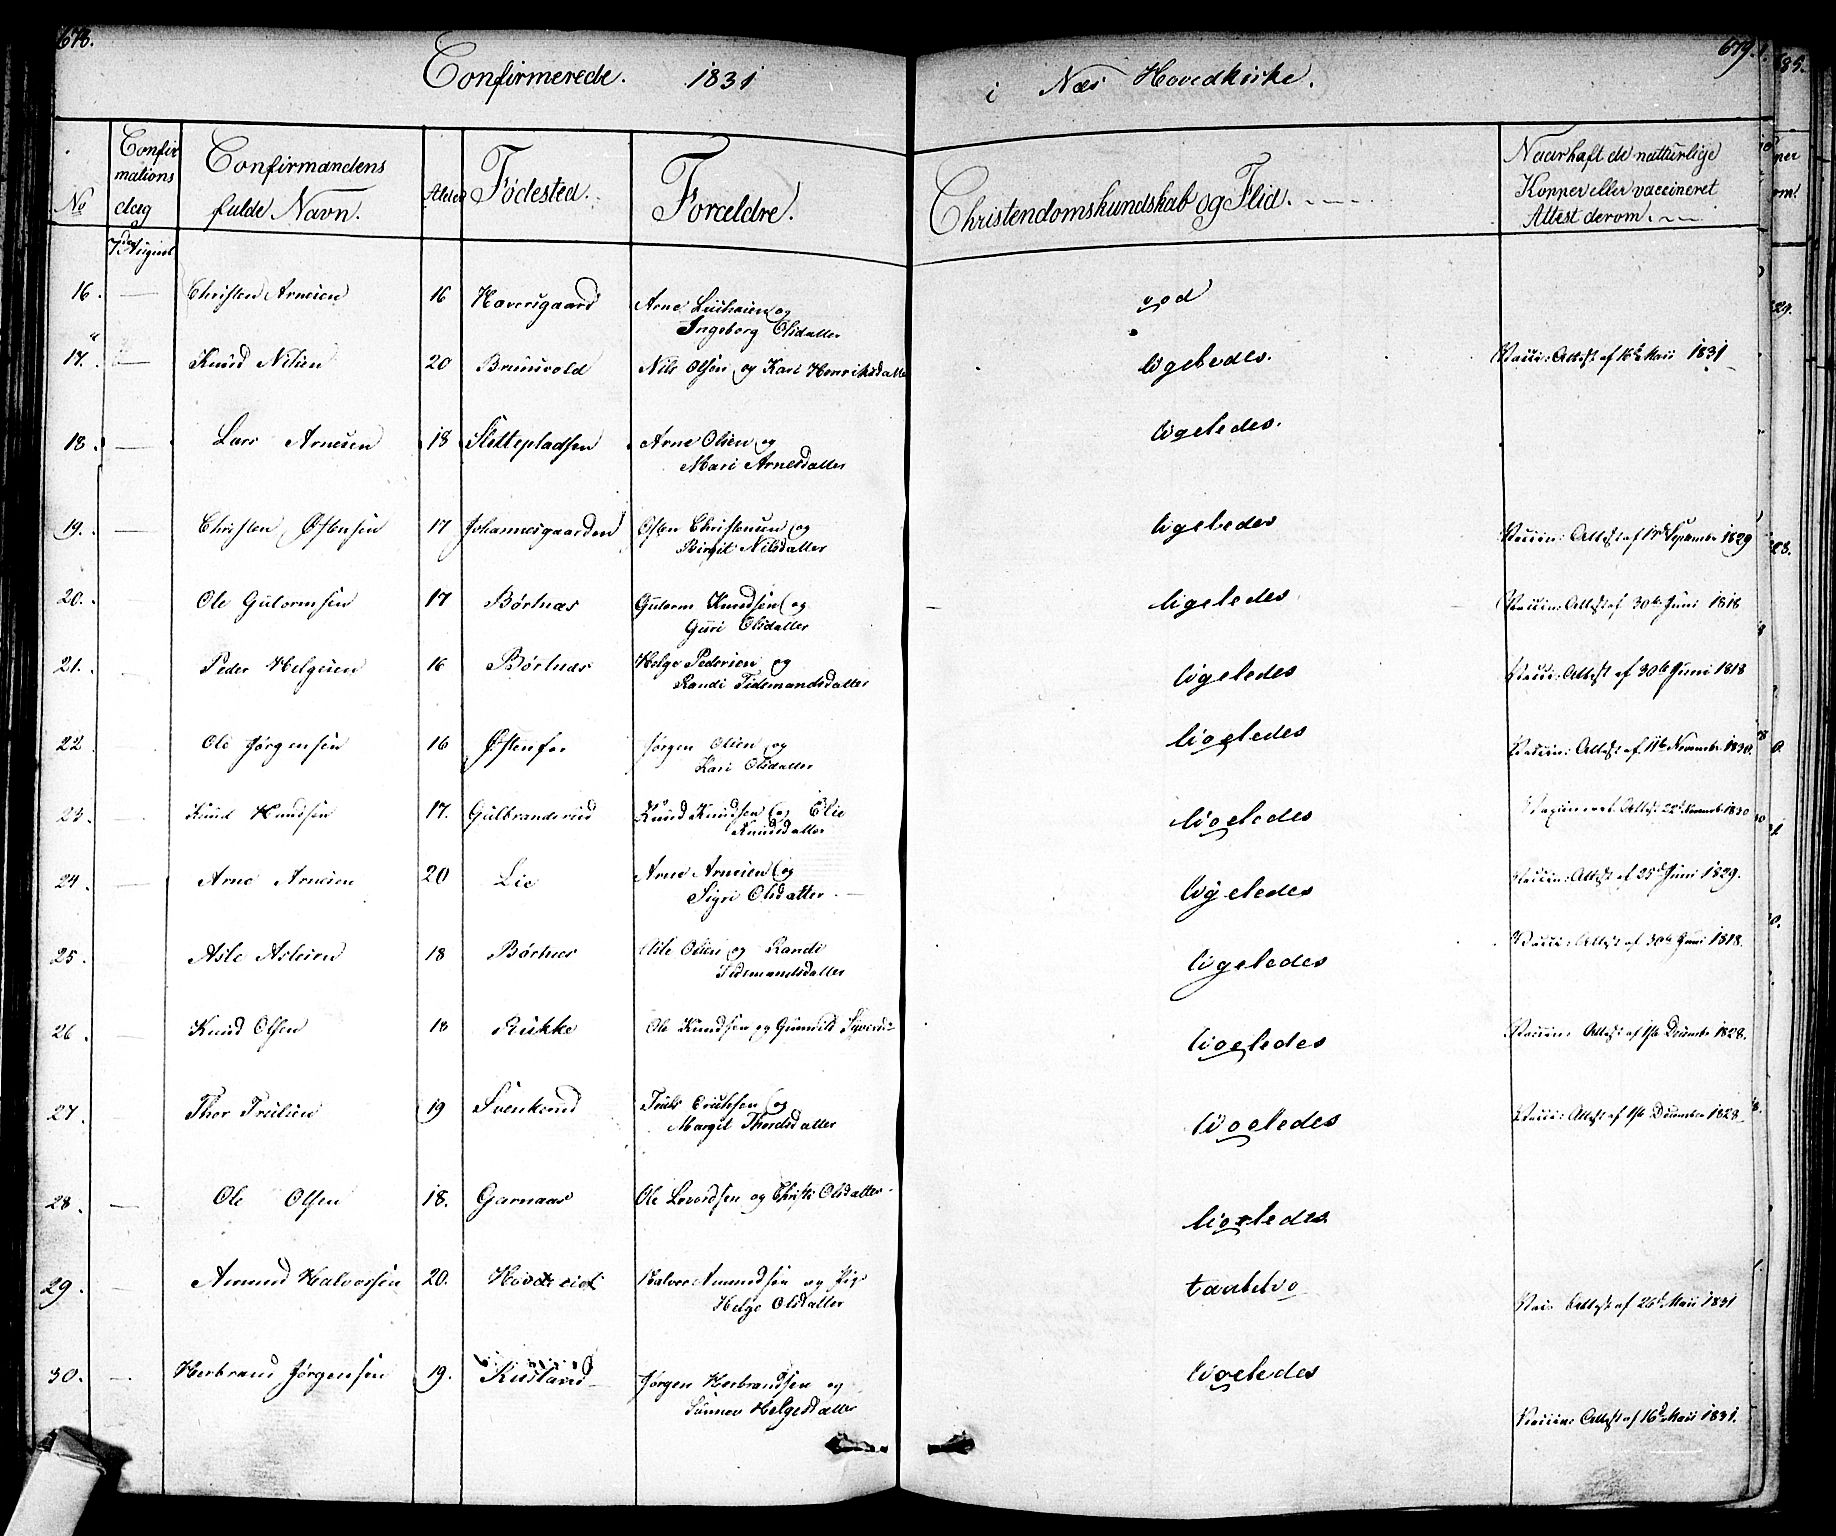 678.
Confirmerede. 1831
i Næs Hovedkirke.
679.
No
Confirmations dag
Confirmandens fulde Navn.
Alder
Fødested.
Forældre.
Christendomskundskab og Flid.
Naar haft de naturlige Kopper eller vaccineret Attest derom.
7de August
16. Christen Arnesen 16 Haversgaard Arne og
Ingeborg Olsdatter god
17. Knud Nilsen 20 Bruusvold Nils Olsen og Kari Henriksdatter ligeledes. Vacci: Attest af 16de Maii 1831
18. Lars Arnesen 18 Slettepladsen Arne Olsen og
Mari Arnesdatter ligeledes.
19. Christen Østensen 17 Johannesgaarden Østen Christensen og
Birgit Nilsdatter ligeledes Vaccin: Attest af September 1829
20. Ole Gulormsen 17 Børtnæs Gulorm Knudsen og
Guri Olsdatter ligeledes Vaccin: Attest af 30te Juni 1818
21. Peder Helgesen 16 Børtnæs Helge Pedersen og
Randi Tidemandsdatter ligeledes Vacci: Attest af 30te Juni 1818
22 Ole Jørgensen 16 Østenfor Jørgen Olsen og
Kari Olsdatter ligeledes Vaccin: Attest af 11te November 1830.
23. Knud Knudsen 17. Gulbrandsrud Knud Knudsen og Elie
Knudsdatter ligeledes Vaxineret Attest 22d November 1830
24. Arne Arnesen 20 Lie Arne Arnesen og
Sigri Olsdatter ligeledes Vaccin: Attest af 25d Juni 1829.
25. Asle Aslesen 18 Børtnæs Asle Olsen og Randi
Tidemandsdatter ligeledes Vacci: Attest af 30te Juni 1818.
26. Knud Olsen 18 Rukke Ole Knudsen og Gunnild ligeledes Vaccin: Attest af 1ste December 1828.
27. Thor Trulsen 19 Svenkerud Truls Eriksen og
Margit Thordsdatter ligeledes Vacci: Attest af 1ste December 1828.
28. Ole Olsen 18. Garnaas Ole Levordsen og Christi Olsdatter ligeledes
29. Amund Halvorsen 20. Halvor Amundsen og Pige
Helge Olsdatter taalelig Vaci Attest af 26d Maii 1831
30. Herbrand Jørgensen 19. Jørgen Herbrandsen og
Sünnev Helgesdatter ligeledes Vaccin: Attest af 16d Maii 1831.